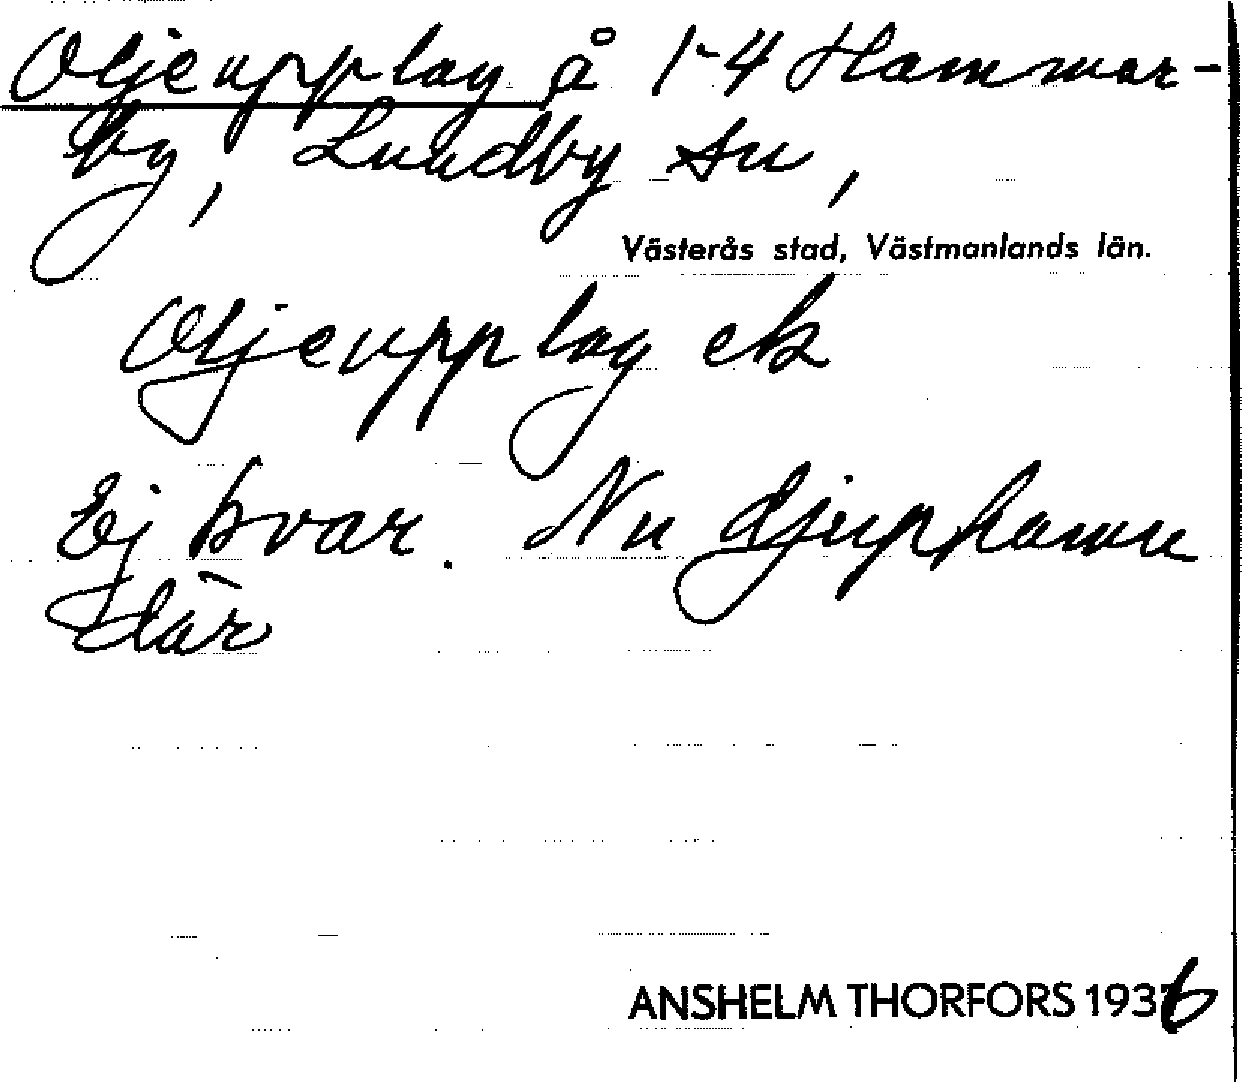 Oljeupplag å 1-4 Hammar-
by, Lundby sn,
Västerås stad, Västmanlands län.
Oljeupplag ek
Ej kvar. Nu djuphamn
där
ANSHELM THORFORS 1936